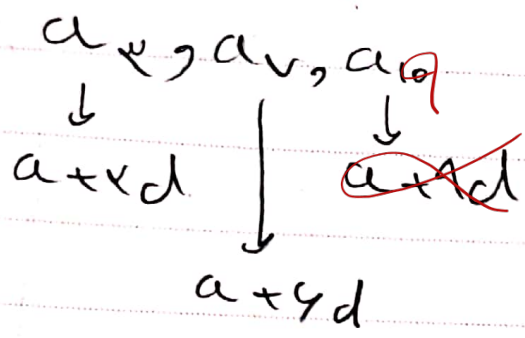 a۳, a۷, a۹
a+۲d a+۹d
a+۶d